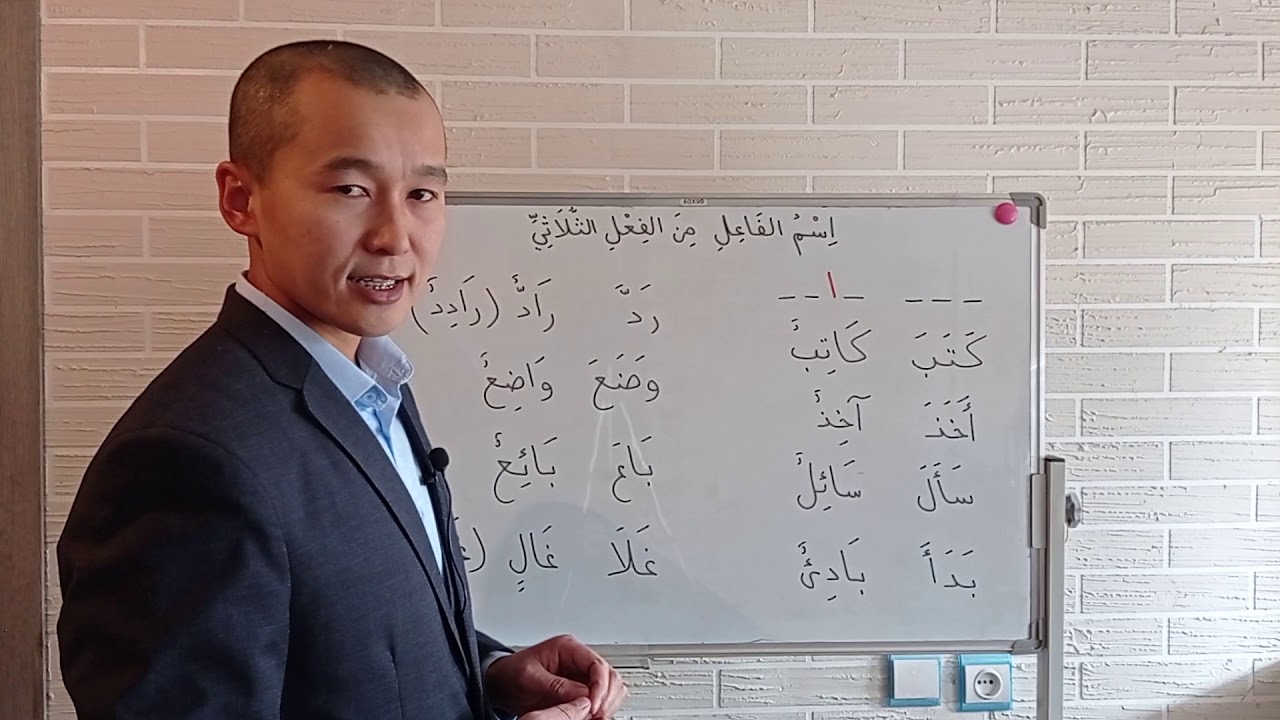 60X90
اِسْمُ الفَاعِلِ مِنَ الفِعْلِ الثُّلَاثِيِّ
ـ ـ ـ ـ ا ـ ـ
كَتَبَ كَاتِبٌ
أَخَذَ آخِذٌ
سَأَلَ سَائِلٌ
بَدَأَ بَادِئٌ
رَدَّ رَادٌّ (رَادِدٌ)
وَضَعَ وَاضِعٌ
بَاعَ بَائِعٌ
غَلَا غَالٍ